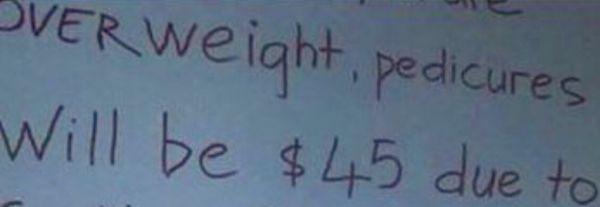 OVERWeight, pedicures
Will be $45 due to